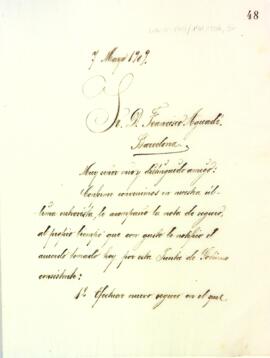 48
7 Mayo 1909.
Sr. D. Francisco Aguadé
Barcelona
Muy señor mio y distinguido amigo:
Conforme convenimos en nuestra úl-
tima entrevista, le acompaño la nota de seguro,
al propio tiempo que con gusto le notifico el
acuerdo tomado hoy por esta Junta de
consistente:
1º Efectuar nuevo seguro en el que